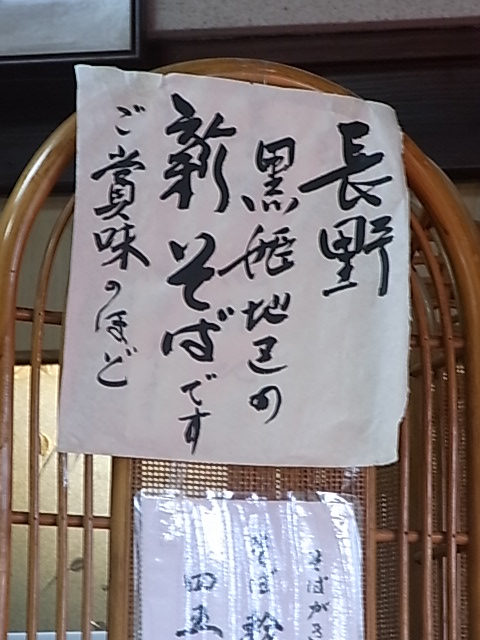 長野
黒姫地区の
新そばです
ご賞味のほど
そばがき